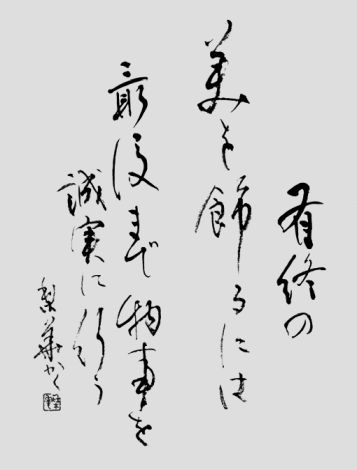 有終の
美を飾るには
最後まで物事を
誠実に行う
梨華かく